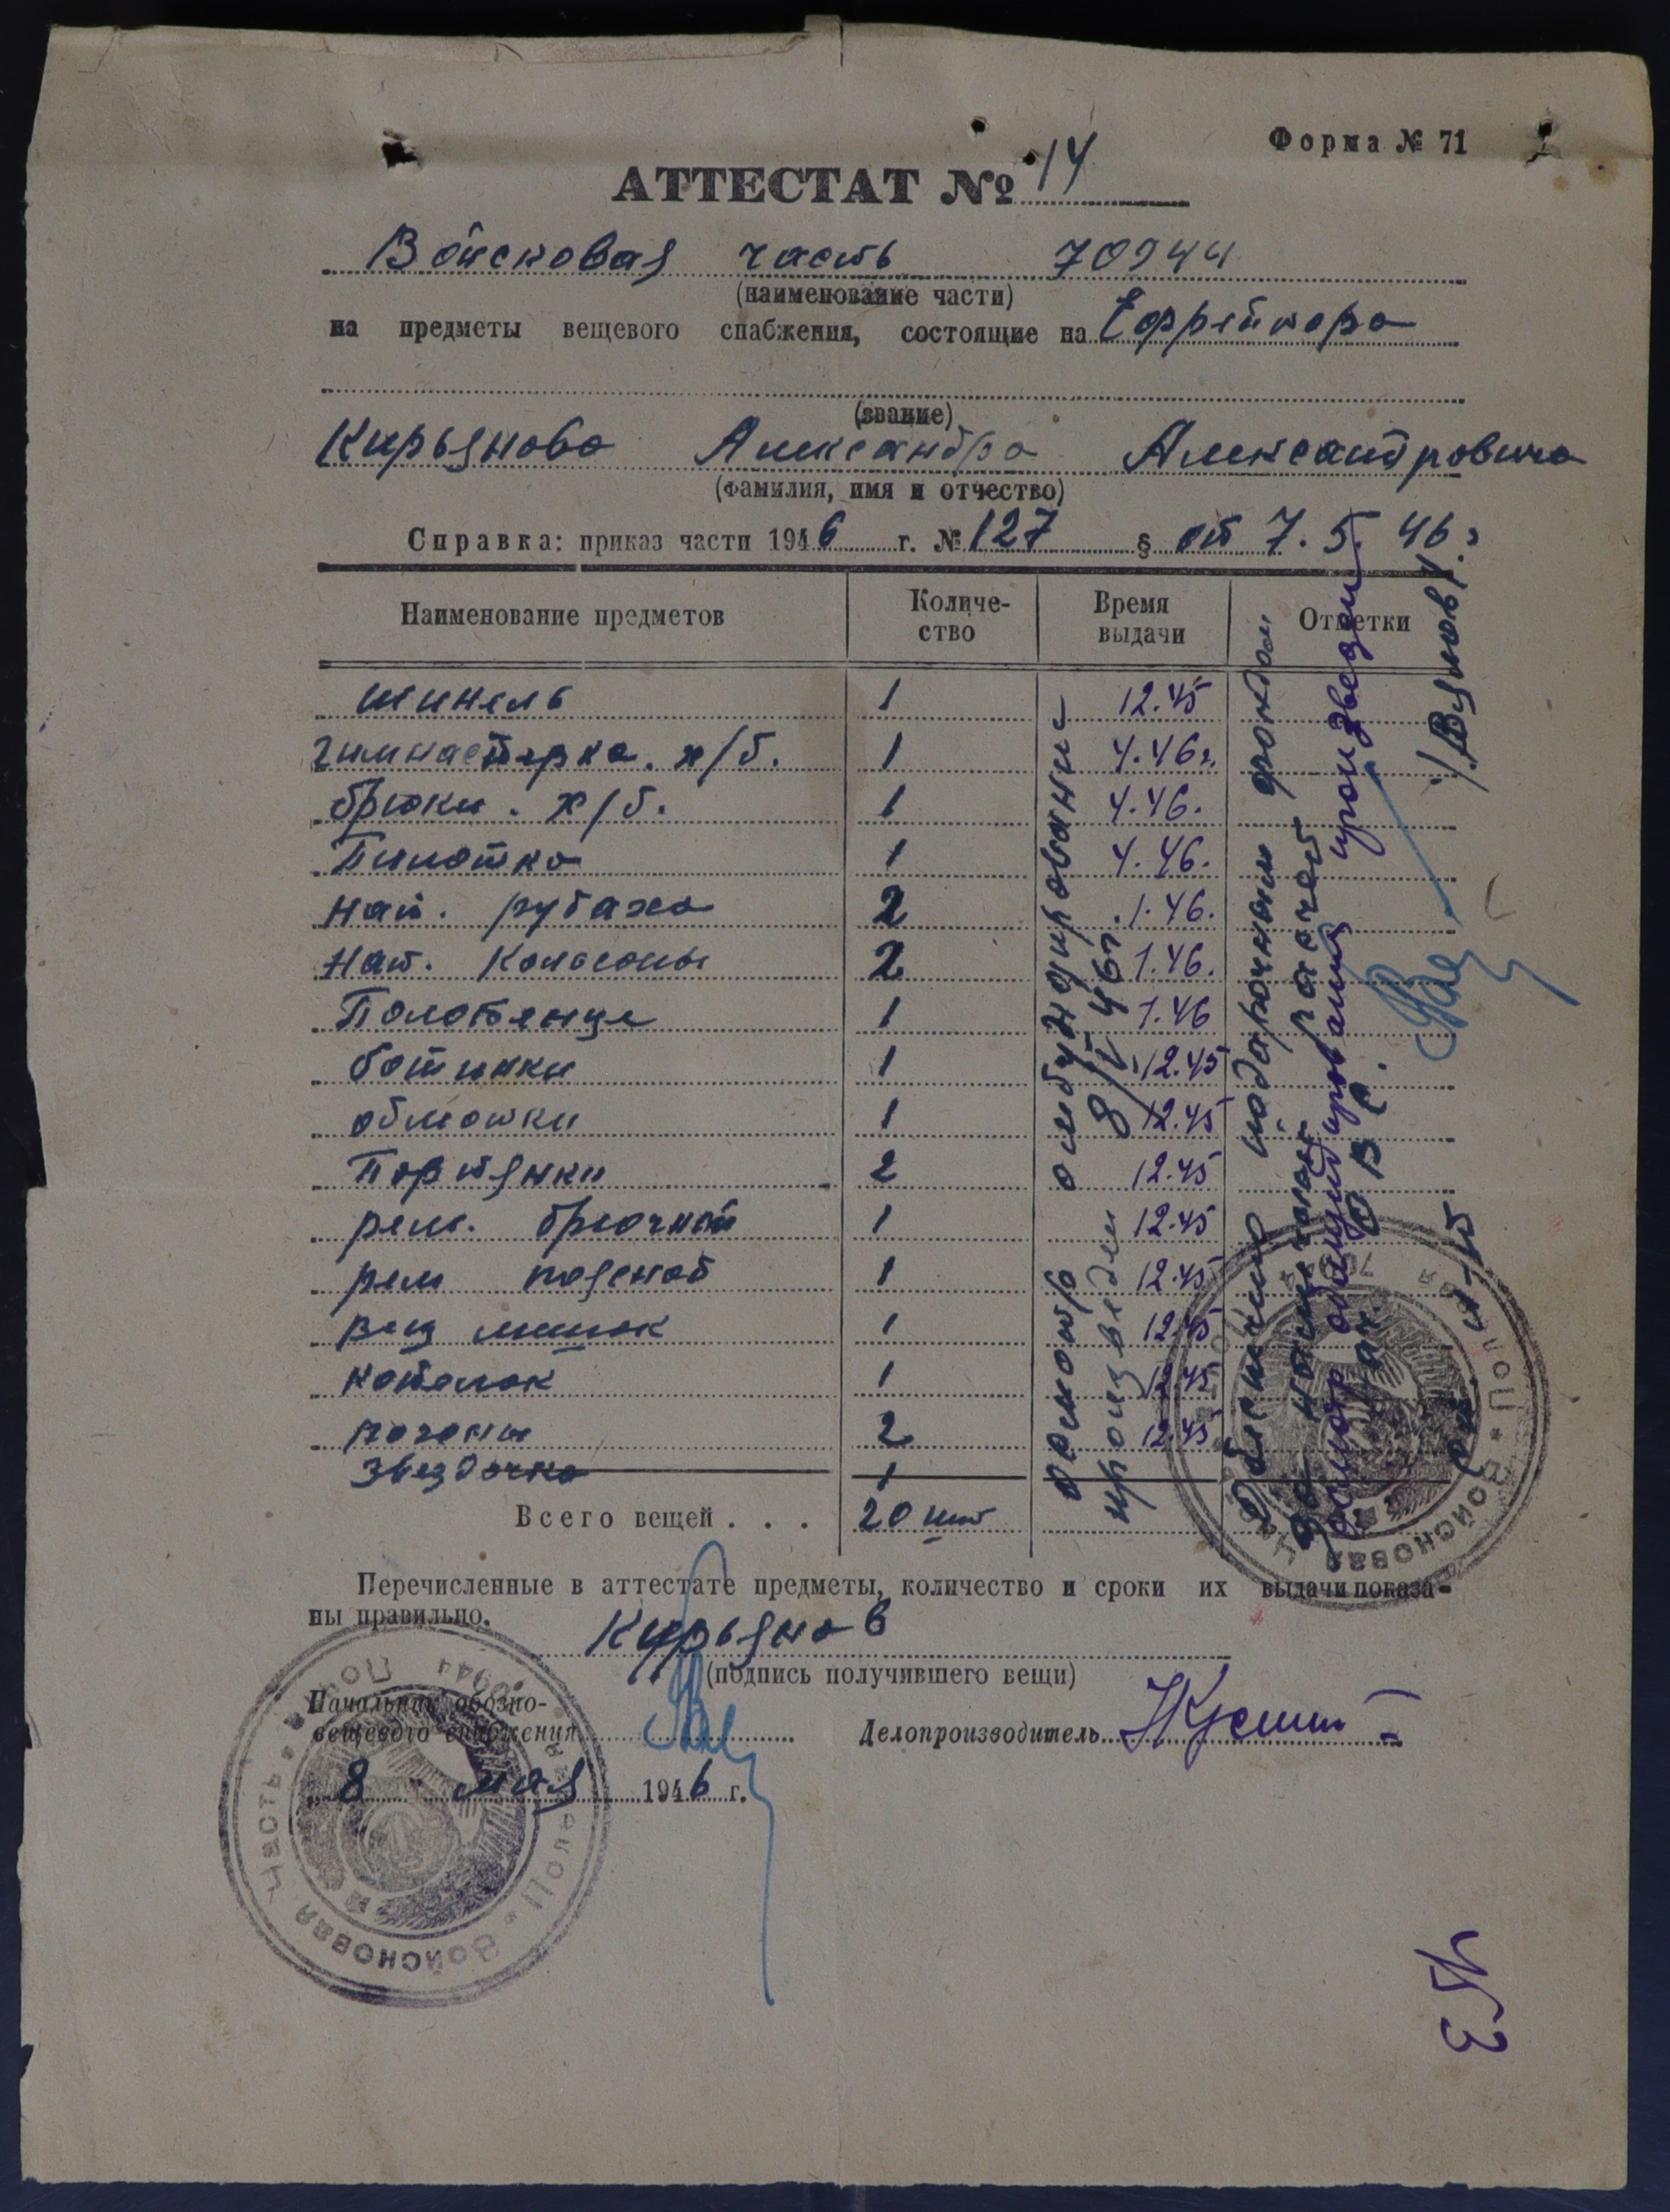 Форма № 71
АТТЕСТАТ № 14
Войсковая часть 70944
(наименование части)
на предметы вещевого снабжения, состоящие на Ефрейтора
(звание)
Кирьянова Александра Александровича
(фамилия, имя и отчество)
Справка: приказ части 1946 г. № 127 § от 7.5.46 г
Наименование предметов Количе- Время Отметки
ство выдачи
шинель 1 12.45
гимнастерка. х/б. 1 4.46г.
брюки. х/б. 1 4.46.
Пилотка 1 4.46.
нат. рубаха 2 1.46.
нат. Кальсоны 2 1.46.
Полотенце 1 1.46
ботинки 1 12.45
обмотки 1 12.45
Портянки 2 12.45
рем. брючной 1 12.45
рем поясной 1 12.45
вещ мешок 1 12.45
котелок 1 12.45
погоны 2 12.45
звездочка 1
Всего вещей . . . 20 шт
осмотр обмундирования
произведен 8/V 46г
подарочным фондом
расчет
обмундирования произведен
ОВС
Перечисленные в аттестате предметы, количество и сроки их выдачи показа-
ны правильно.
Кирьянов
(подпись получившего вещи)
Начальник обозно-
вещевого снабжения
Делопроизводитель
8 мая 1946 г.
Войсковая Часть
Полевая